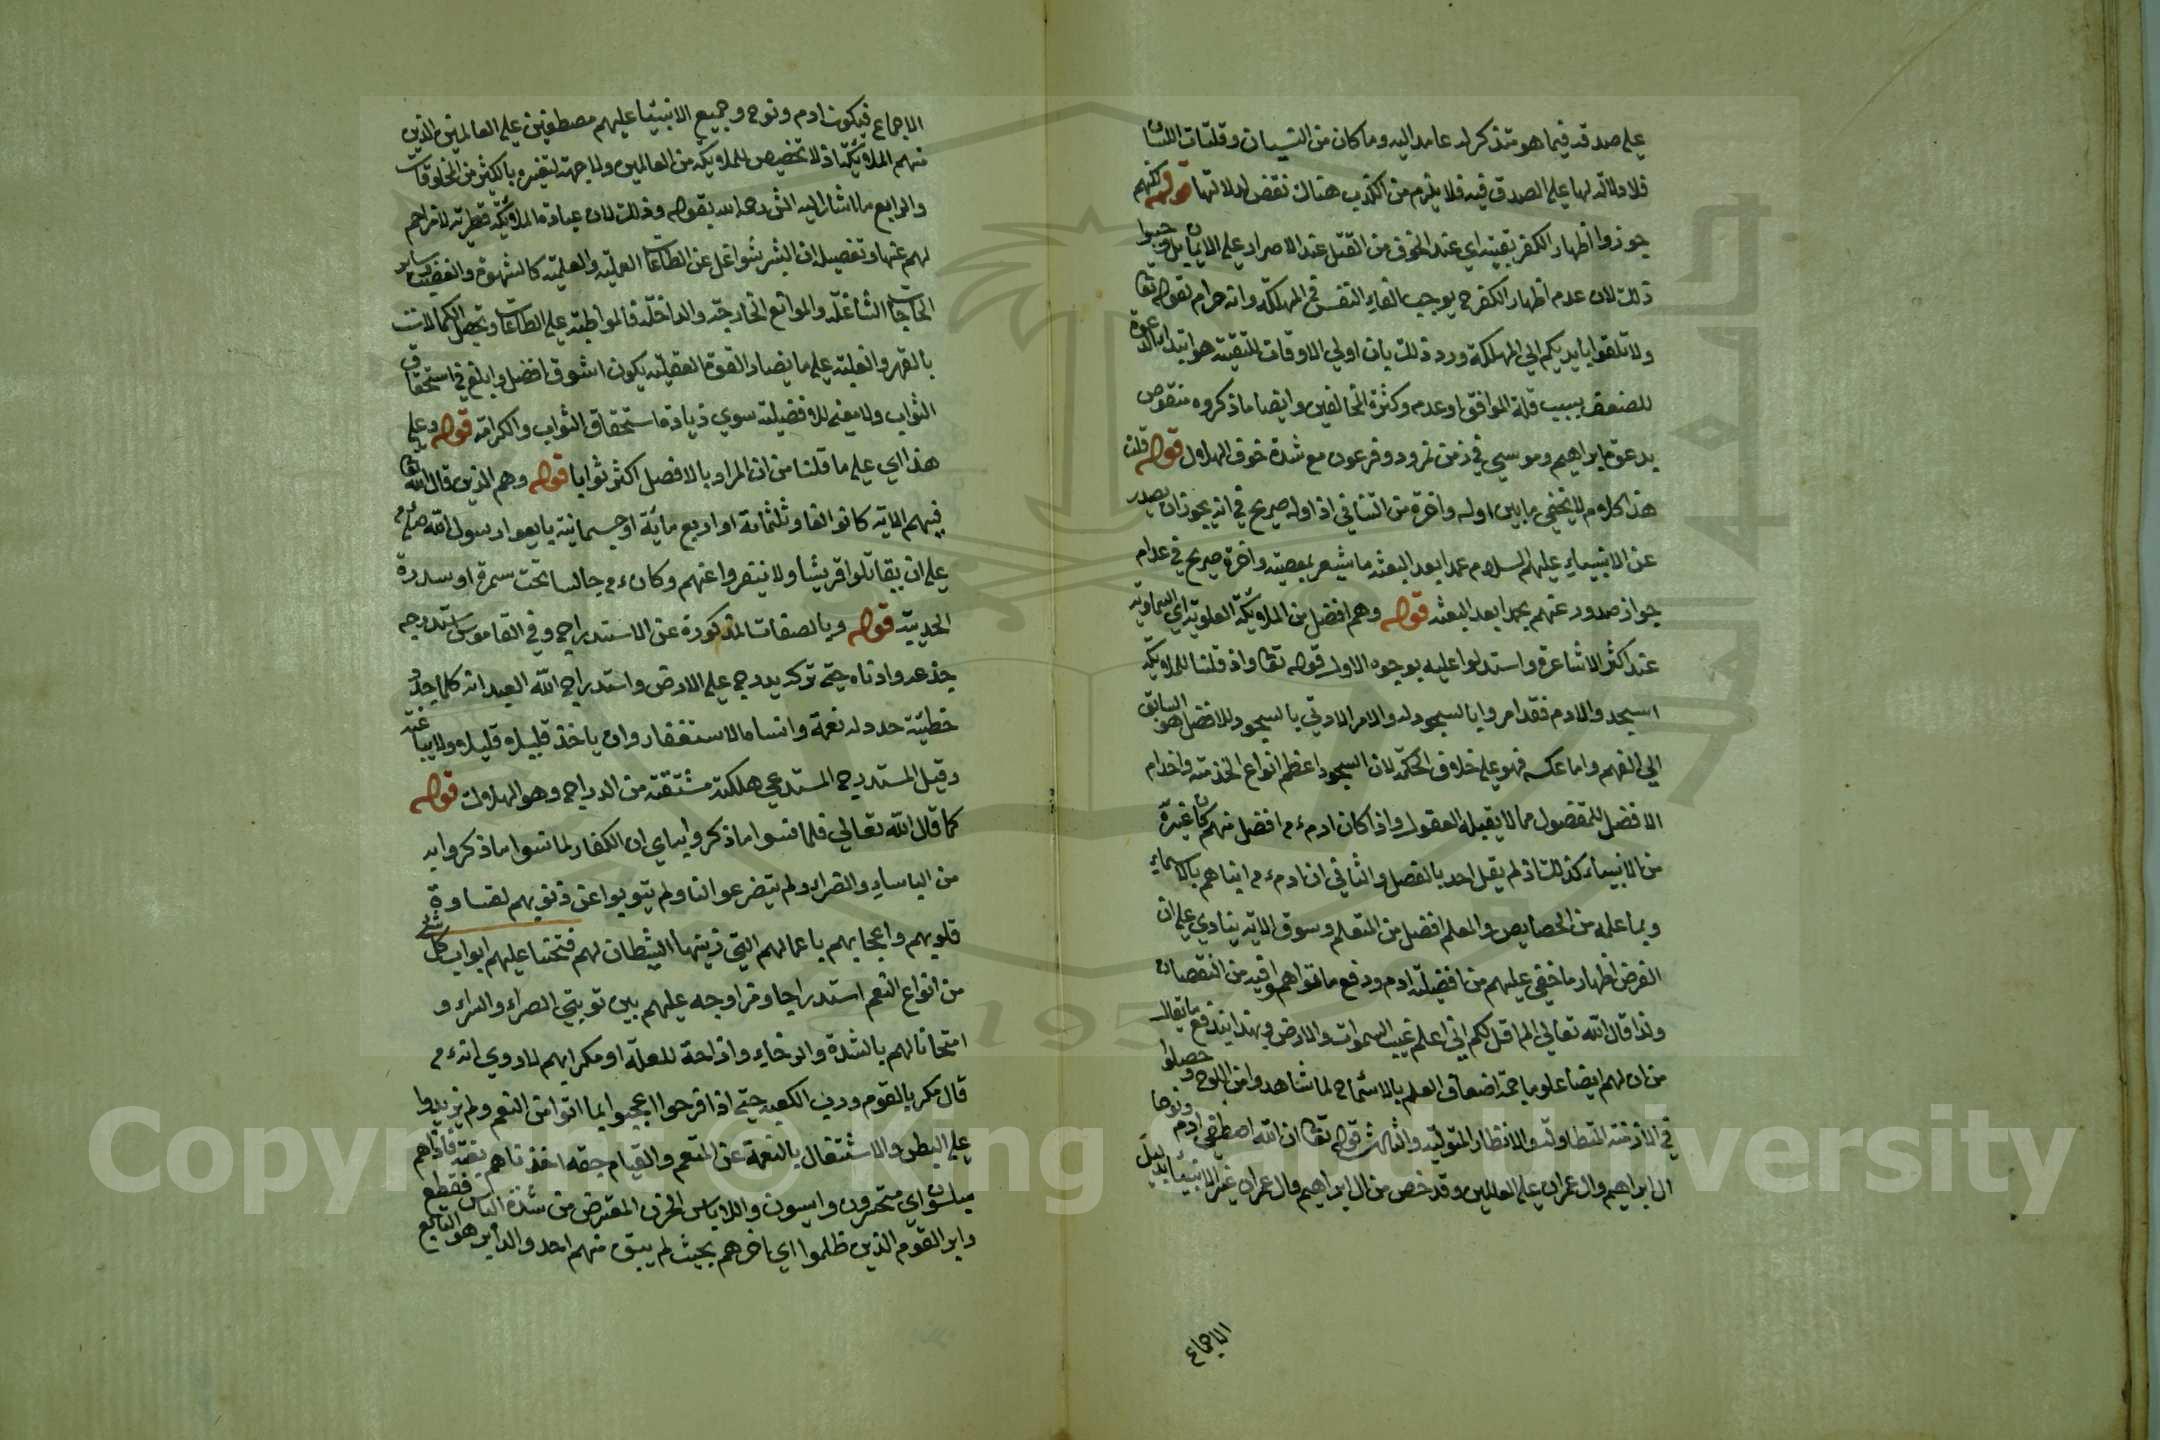 علي صدقه فيما هو متذكر له عامد اليه وما كان من النسيان وفلتات اللسان
فلا دلالة لها علي الصدق فيه فلا يلزم من الكذب هناك نقض لدلالتها قوله لكنهم
جوزوا اظهار الكفر تقية اي عند الخوف من القتل عند الاصرار علي الايمان بل وجبوا
ذلك لان عدم اظهار الكفرح يوجب القاء النفس في المهلكة وانه حرام لقوله تعا
ولا تلقوا بايديكم الي المهلكة ورد ذلك بان اولي الاوقات للتقية هو ابتداء الدعوة
للضعف بسبب قلة الموافق او عدمه وكثرة المخالفين وايضا ما ذكروه منقوض
بدعوة ابراهيم وموسي في زمن نمرود وفرعون مع شدة خوف الهلاك قوله قلت
هذا كلام لا يخفي ما بين اوله واخره من التنافي اذ اوله صريح في انه يجوز ان يصدر
عن الانبياء عليهم السلام عمدا بعد البعثه ما يشعر بمعصيته واخره صريح في عدم
جواز صدوره عنهم عمدا بعد البعثه قوله وهم افضل من الملائكة العلوية اي السماوية
عند اكثر الاشاعرة واستدلوا عليه بوجوه الاول قوله تعا واذ قلنا للملائكة
اسجدوا لادم فقد امروا بالسجود له والامر الادني بالسجود للافضل هو السابق
الي الفهم واما عكسه فهو علي خلاف الحكمة لان السجود اعظم انواع الخدمة واخدام
الافضل للمفضول مما لا يقبله العقول واذا كان ادم ءم افضل منهم كان غيره
من الانبياء كذلك اذ لم يقل احد بالفصل والثاني ان ادم ءم انباهم بالاسماء
وبما علمه من الخصايص والمعلم افضل من المتعلم وسوق الاية ينادي علي ان
الغرض اظهار ما خفي عليهم من افضلية ادم ودفع ما توهموا فيه من النقصان
ولذا قال الله تعالي الم اقل لكم اني اعلم غيب السموات والارض وبهذا يندفع ما يقال
من ان لهم ايضا علوما جمة اضعاف العلم بالاسماء لما شاهدوا من اللوح وحصلوا
في الازمنة المتطاولة والانظار المتوالية والثالث قوله تعا ان الله اصطفي ادم ونوحا
ال ابراهيم وال عمران علي العالمين وقد خص من ال ابراهيم وال عمران غير الانبياء بدليل
الاجماع
الاجماع فيكون ادم ونوح وجميع الانبياء عليهم مصطفين علي العالمين الذين
منهم الملائكة اذ لا تخصيص للملائكة من العالمين ولا جهة لتفسيره بالكثير من المخلوقات
والرابع ما اشار اليه الش رحمه الله بقوله وذلك لان عبادة الملائكة فطرية لا مزاحم
لهم عنها وتفصيله ان للبشر شواغل عن الطاعات العملية والعلمية كالشهوة والغضب وساير
الحاجات الشاغلة والموانع الخارجة والداخلة فالمواظبة علي الطاعات وتحصيل الكمالات
بالقهر والغلبة علي ما يضاد القوة العقلية يكون اشق وافضل وابلغ في استحقاق
الثواب ولا معني للافضلية سوي زيادة استحقاق الثواب والكرامة قوله وعلي
هذا اي علي ما قلنا من ان المراد بالافضل اكثر ثوابا قوله وهم الذين قال الله تعا
فيهم الاية كانوا الفا وثلثماية او اربع ماية او خسماية بايعوا رسول الله صلعم
علي ان يقاتلوا قريشا ولا يتفروا عنهم وكان ءم جالسا تحت سمرة او سدرة
الحديبية قوله وبالصفات المذكورة عن الاستدراج وفي القاموس استدرجه
خدعه وادناه حتي تركه يدرج علي الارض واستدراج الله العبد انه كلما جدد
خطيئة جدد له نعمة وانساه الاستغفار وان ياخذ قليلا قليلا ولا يباغته
وقيل المستدرج المستدعي هلكته مشتقة من الدراج وهو الهلاك قوله
كما قال الله تعالي فلما نسوا ما ذكروا به اي ان الكفار لما نسوا ما ذكروا به
من الباساء والضراء ولم يتضرعوا لنا ولم يتوبوا عن ذنوبهم لقساوة
قلوبهم واعجابهم باعمالهم التي زينها الشيطان لهم فتحنا عليهم ابواب كل شئ
من انواع النعم استدراجا ومراوجه عليهم بين نوبتي الضراء والسراء و
امتحانا لهم بالشدة والرخاء وازاحة للعلة او مكرا بهم لما روي انه ءم
قال مكر بالقوم ورب الكعبه حتي اذا فرحوا اعجبوا بما اتوا من النعم ولم يزيدوا
علي البطر والاشتغال بالنعمة عن المنعم والقيام بحقه اخذناهم بغتة فاذاهم
مبلسون اي متحسرون وايسون والابلاس الحزن المعترض من شدة الياس فقطع
دابر القوم الذين ظلموا اي اخرهم بحيث لم يبق منهم احد والدابر هو التابع
Copyright © King Saud University
1957